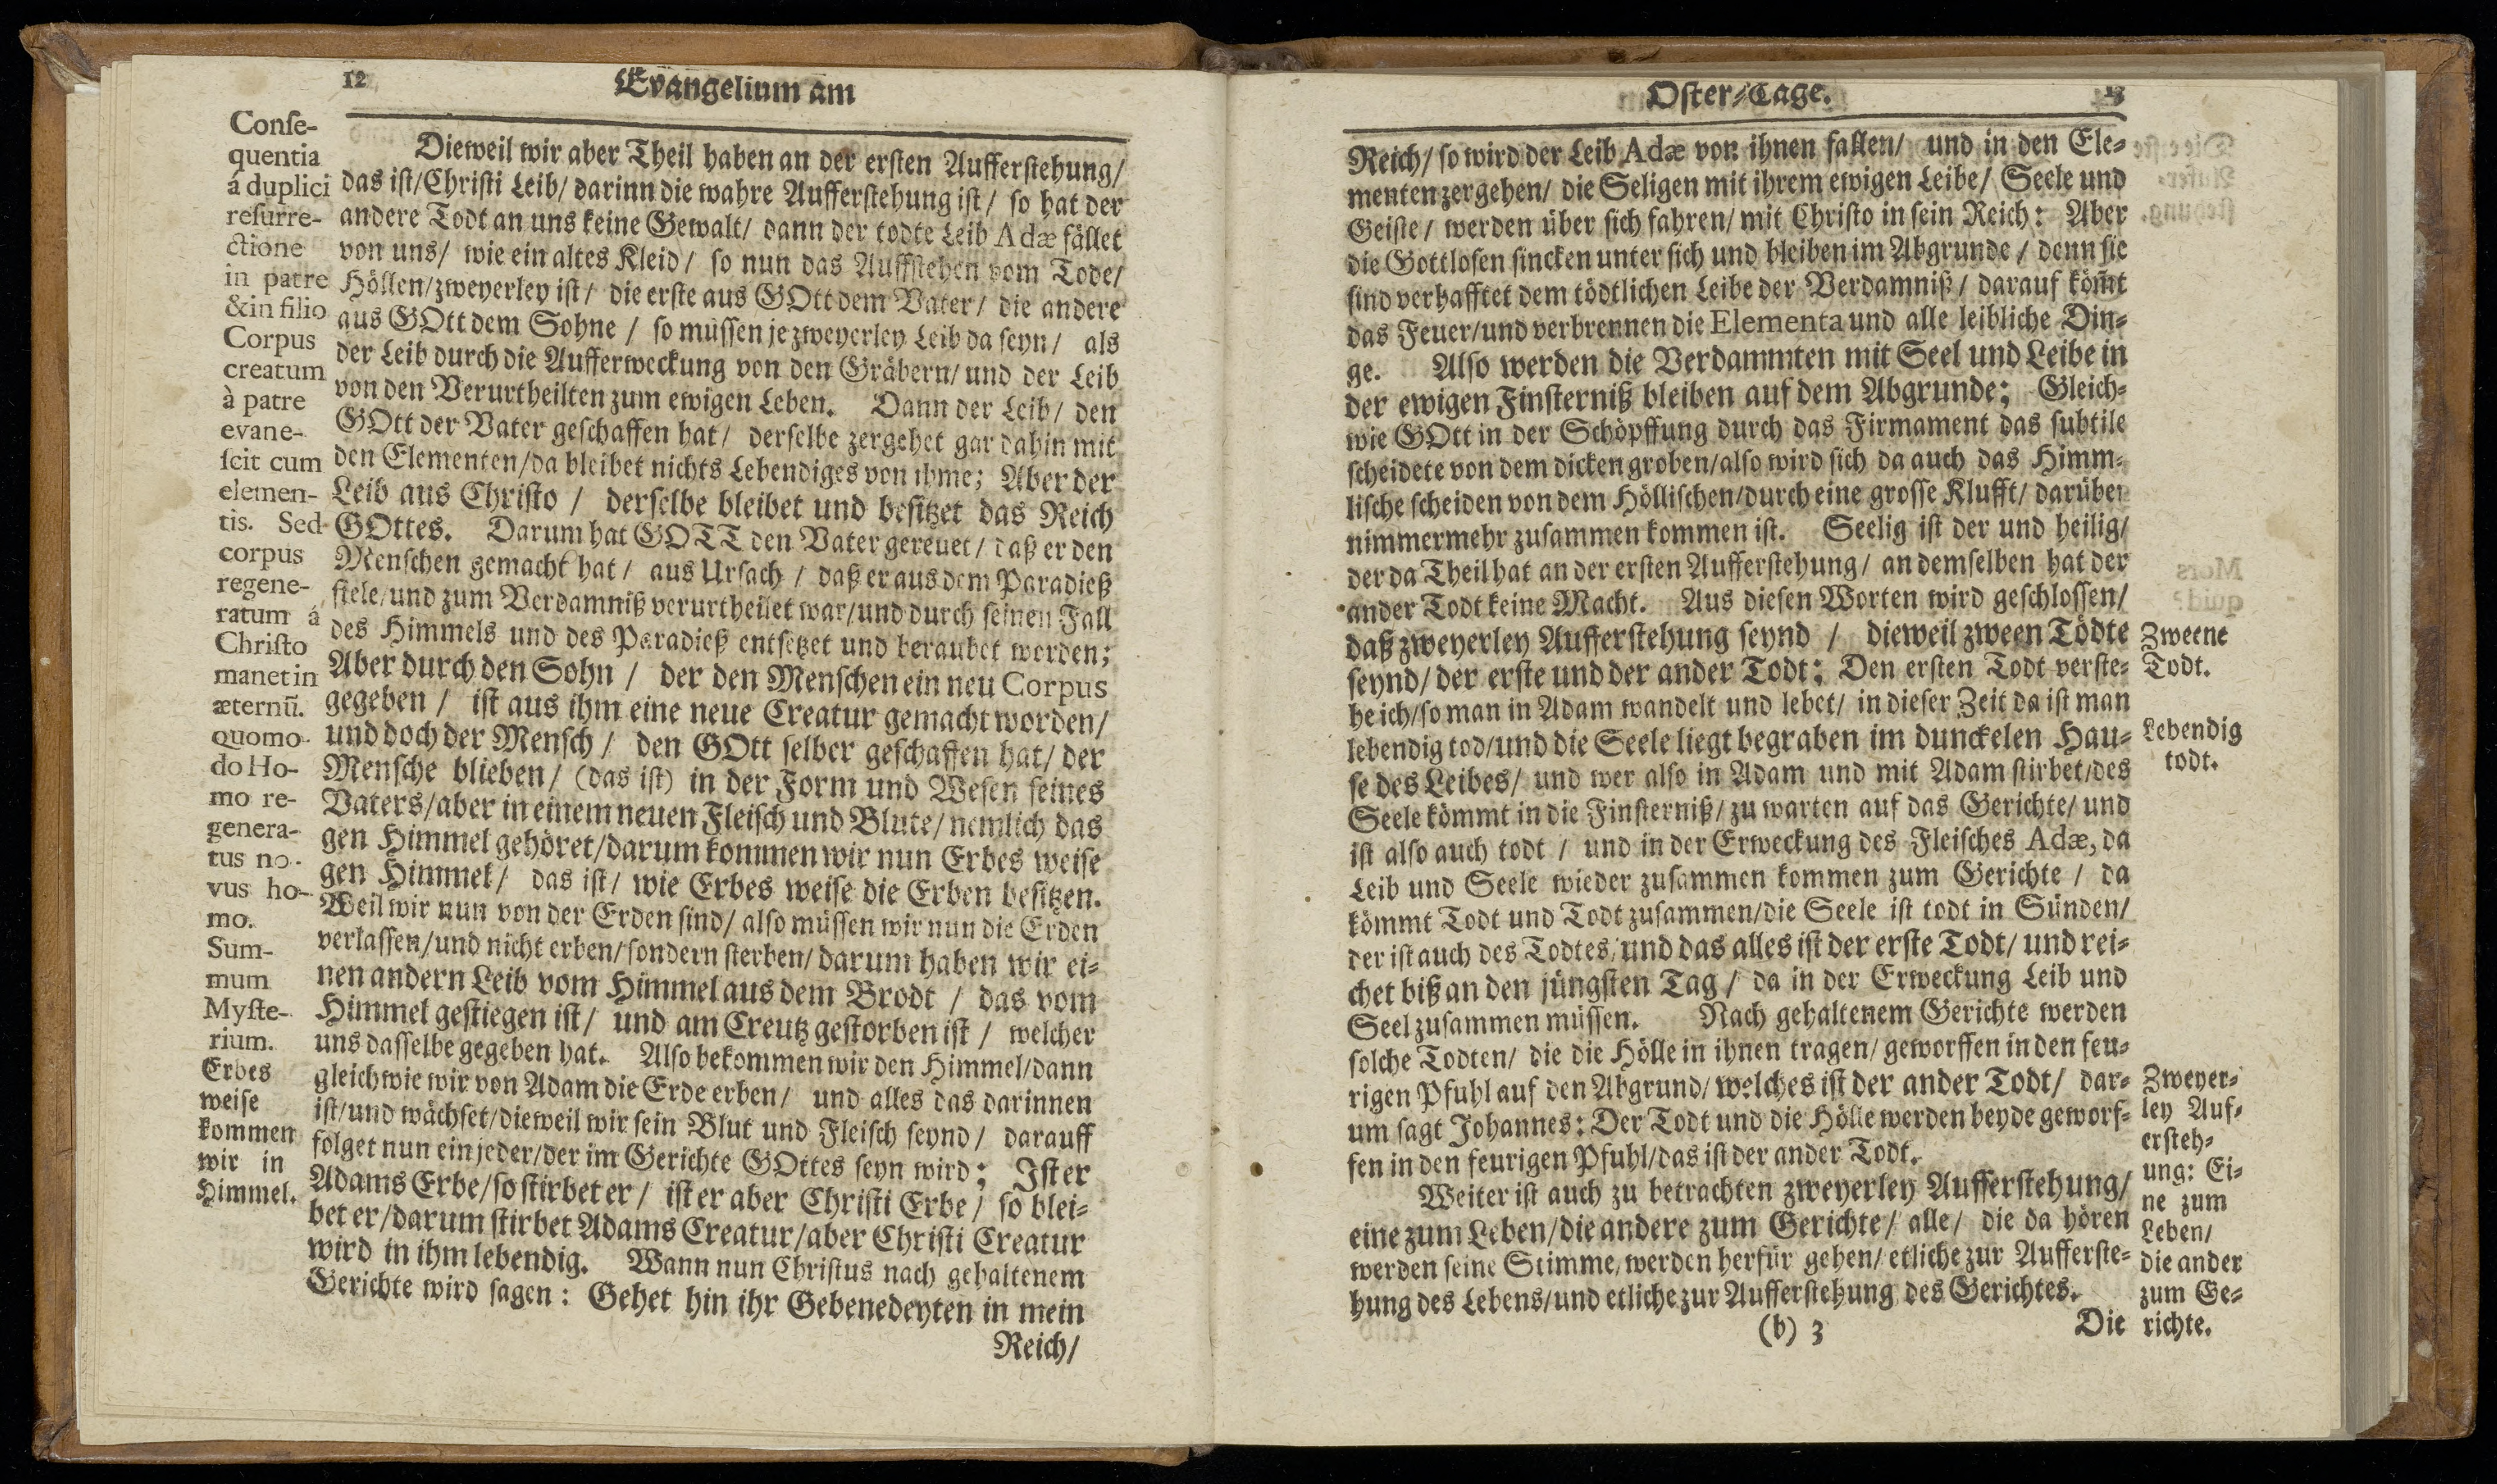 12
Evangelium am
Conſe-
quentia
á duplici
reſurre-
ctione
in patre
& in filio
Corpus
creatum
à patre
evane-
ſcit cum
elemen-
tis. Sed
corpus
regene-
ratum á
Chriſto
manet in
æternū.
quomo-
do Ho-
mo re-
genera-
tus no-
vus ho-
mo.
Sum-
mum
Myſte-
rium.
Erbes
weiſe
kommen
wir in
Himmel.
Dieweil wir aber Theil haben an der erſten Aufferſtehung/
das iſt/Chriſti Leib/ darinn die wahre Aufferſtehung iſt/ ſo hat der
andere Todt an uns keine Gewalt/ dann der todte Leib Adæ fället
von uns/ wie ein altes Kleid/ ſo nun das Auffſtehen vom Tode/
Höllen/zweyerley iſt/ die erſte aus GOtt dem Vater/ die andere
aus GOtt dem Sohne / ſo müſſen je zweyerley Leib da ſeyn/ als
der Leib durch die Aufferweckung von den Gräbern/ und der Leib
von den Verurtheilten zum ewigen Leben. Dann der Leib/ den
GOtt der Vater geſchaffen hat/ derſelbe zergehet gar dahin mit
den Elementen/da bleibet nichts Lebendiges von ihme; Aber der
Leib aus Chriſto / derſelbe bleibet und beſitzet das Reich
GOttes. Darum hat GOTT den Vater gereuet/ daß er den
Menſchen gemacht hat/ aus Urſach / daß er aus dem Paradieß
fiele/und zum Verdamniß verurtheilet war/und durch ſeinen Fall
des Himmels und des Paradieß entſetzet und beraubet worden;
Aber durch den Sohn / der den Menſchen ein neu Corpus
gegeben / iſt aus ihm eine neue Creatur gemacht worden/
und doch der Menſch / den GOtt ſelber geſchaffen hat/ der
Menſche blieben/ (das iſt) in der Form und Weſen ſeines
Vaters/aber in einem neuen Fleiſch und Blute/ nemlich das
gen Himmel gehöret/darum kommen wir nun Erbes weiſe
gen Himmel/ das iſt/ wie Erbes weiſe die Erben beſitzen.
Weil wir nun von der Erden ſind/ alſo müſſen wir nun die Erden
verlaſſen/und nicht erben/ſondern ſterben/ darum haben wir ei-
nen andern Leib vom Himmel aus dem Brodt / das vom
Himmel geſtiegen iſt/ und am Creutz geſtorben iſt / welcher
uns daſſelbe gegeben hat. Alſo bekommen wir den Himmel/dann
gleich wie wir von Adam die Erde erben/ und alles das darinnen
iſt/und wächſet/dieweil wir ſein Blut und Fleiſch ſeynd/ darauff
folget nun ein jeder/der im Gerichte GOttes ſeyn wird; Iſt er
Adams Erbe/ſo ſtirbet er/ iſt er aber Chriſti Erbe/ ſo blei-
bet er/darum ſtirbet Adams Creatur/aber Chriſti Creatur
wird in ihm lebendig. Wann nun Chriſtus nach gehaltenem
Gerichte wird ſagen: Gehet hin ihr Gebenedeyten in mein
Reich/
Oſter-Tage.
13
Reich/ ſo wird der Leib Adæ von ihnen fallen/ und in den Ele-
menten zergehen/ die Seligen mit ihrem ewigen Leibe/ Seele und
Geiſte/ werden über ſich fahren/ mit Chriſto in ſein Reich: Aber
die Gottloſen ſincken unter ſich und bleiben im Abgrunde / denn ſie
ſind verhafftet dem tödtlichen Leibe der Verdamniß/ darauf köm̃t
das Feuer/und verbrennen die Elementa und alle leibliche Din-
ge. Alſo werden die Verdammten mit Seel und Leibe in
der ewigen Finſterniß bleiben auf dem Abgrunde; Gleich-
wie GOtt in der Schöpffung durch das Firmament das ſubtile
ſcheidete von dem dicken groben/alſo wird ſich da auch das Himm-
liſche ſcheiden von dem Hölliſchen/durch eine groſſe Klufft/ darüber
nimmermehr zuſammen kommen iſt. Seelig iſt der und heilig/
der da Theil hat an der erſten Aufferſtehung/ an demſelben hat der
ander Todt keine Macht. Aus dieſen Worten wird geſchloſſen/
daß zweyerley Aufferſtehung ſeynd / dieweil zween Tödte
ſeynd/ der erſte und der ander Todt: Den erſten Todt verſte-
he ich/ſo man in Adam wandelt und lebet/ in dieſer Zeit da iſt man
lebendig tod/und die Seele liegt begraben im dunckelen Hau-
ſe des Leibes/ und wer alſo in Adam und mit Adam ſtirbet/des
Seele kömmt in die Finſterniß/ zu warten auf das Gerichte/ und
iſt alſo auch todt / und in der Erweckung des Fleiſches Adæ, da
Leib und Seele wieder zuſammen kommen zum Gerichte / da
kömmt Todt und Todt zuſammen/die Seele iſt todt in Sünden/
der iſt auch des Todtes/und das alles iſt der erſte Todt/ und rei-
chet biß an den jüngſten Tag/ da in der Erweckung Leib und
Seel zuſammen müſſen. Nach gehaltenem Gerichte werden
ſolche Todten/ die die Hölle in ihnen tragen/ geworffen in den feu-
rigen Pfuhl auf den Abgrund/ welches iſt der ander Todt/ dar-
um ſagt Johannes: Der Todt und die Hölle werden beyde geworf-
fen in den feurigen Pfuhl/das iſt der ander Todt.
Weiter iſt auch zu betrachten zweyerley Aufferſtehung/
eine zum Leben/die andere zum Gerichte/ alle/ die da hören
werden ſeine Stimme/werden herfür gehen/ etliche zur Aufferſte-
hung des Lebens/und etliche zur Aufferſtehung des Gerichtes.
(b) 3
Die
Zweene
Todt.
Lebendig
todt.
Zweyer-
ley Auf-
erſteh-
ung: Ei-
ne zum
Leben/
die ander
zum Ge-
richte.